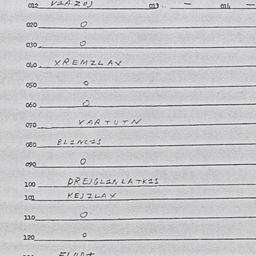 012 VIAZOJ 013 — 014 —
020 O
030 O
040 XREMZLAX
050 O
060 O
070 VARTUTN
080 BLINCIS
090 O
100 DREJGLINLATKIS
101 KEJZLAX
110 O
120 O